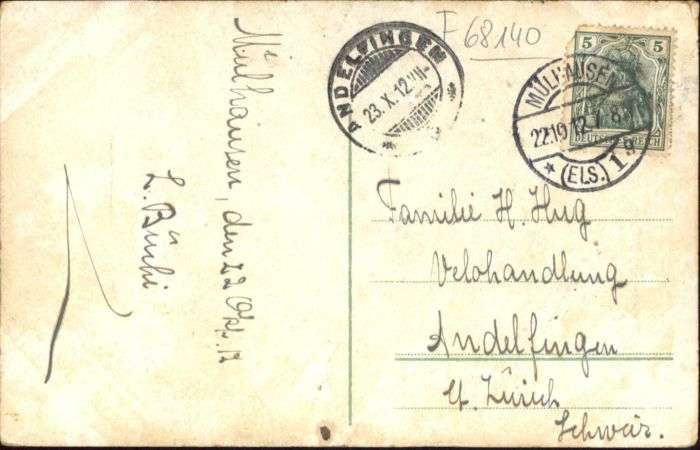 F 68140
ANDELFINGEN
23.X.12
5 5
DEUTSCHES REICH
MÜLHAUSEN
22.10.12.7-8
* (ELS.) 1 g
Mülhausen, den 22 Okt. 12
L. Büchi
Familie H. Hug
Velohandlung
Andelfingen
Ct. Zürich
Schweiz.